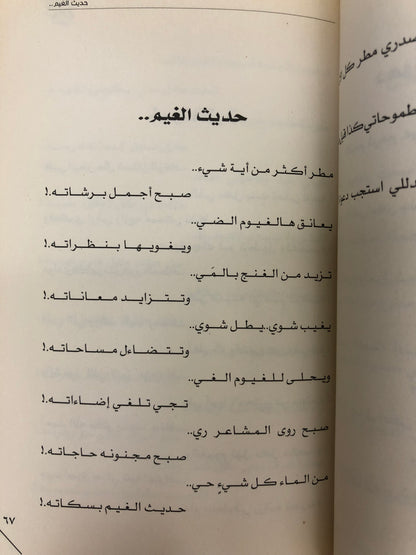 حديث الغيم..
صدري مطر كل
طموحاتي كذا
دللي استجب دعو
حديث الغيم..
مطر أكثر من أية شيء..
صبح أجمل برشاته.!
يعانق هالغيوم الضي..
ويغويها بنظراته.!
تزيد من الغنج بالمَي..
وتتزايد معاناته.!
يغيب شوي..يطل شوي..
وتتضاءل مساحاته.!
ويحلى للغيوم الغي..
تجي تلغي إضاءاته.!
صبح روى المشاعر ري..
صبح مجنونه حاجاته.!
من الماء كل شيءٍ حي..
حديث الغيم بسكاته.!
٦٧